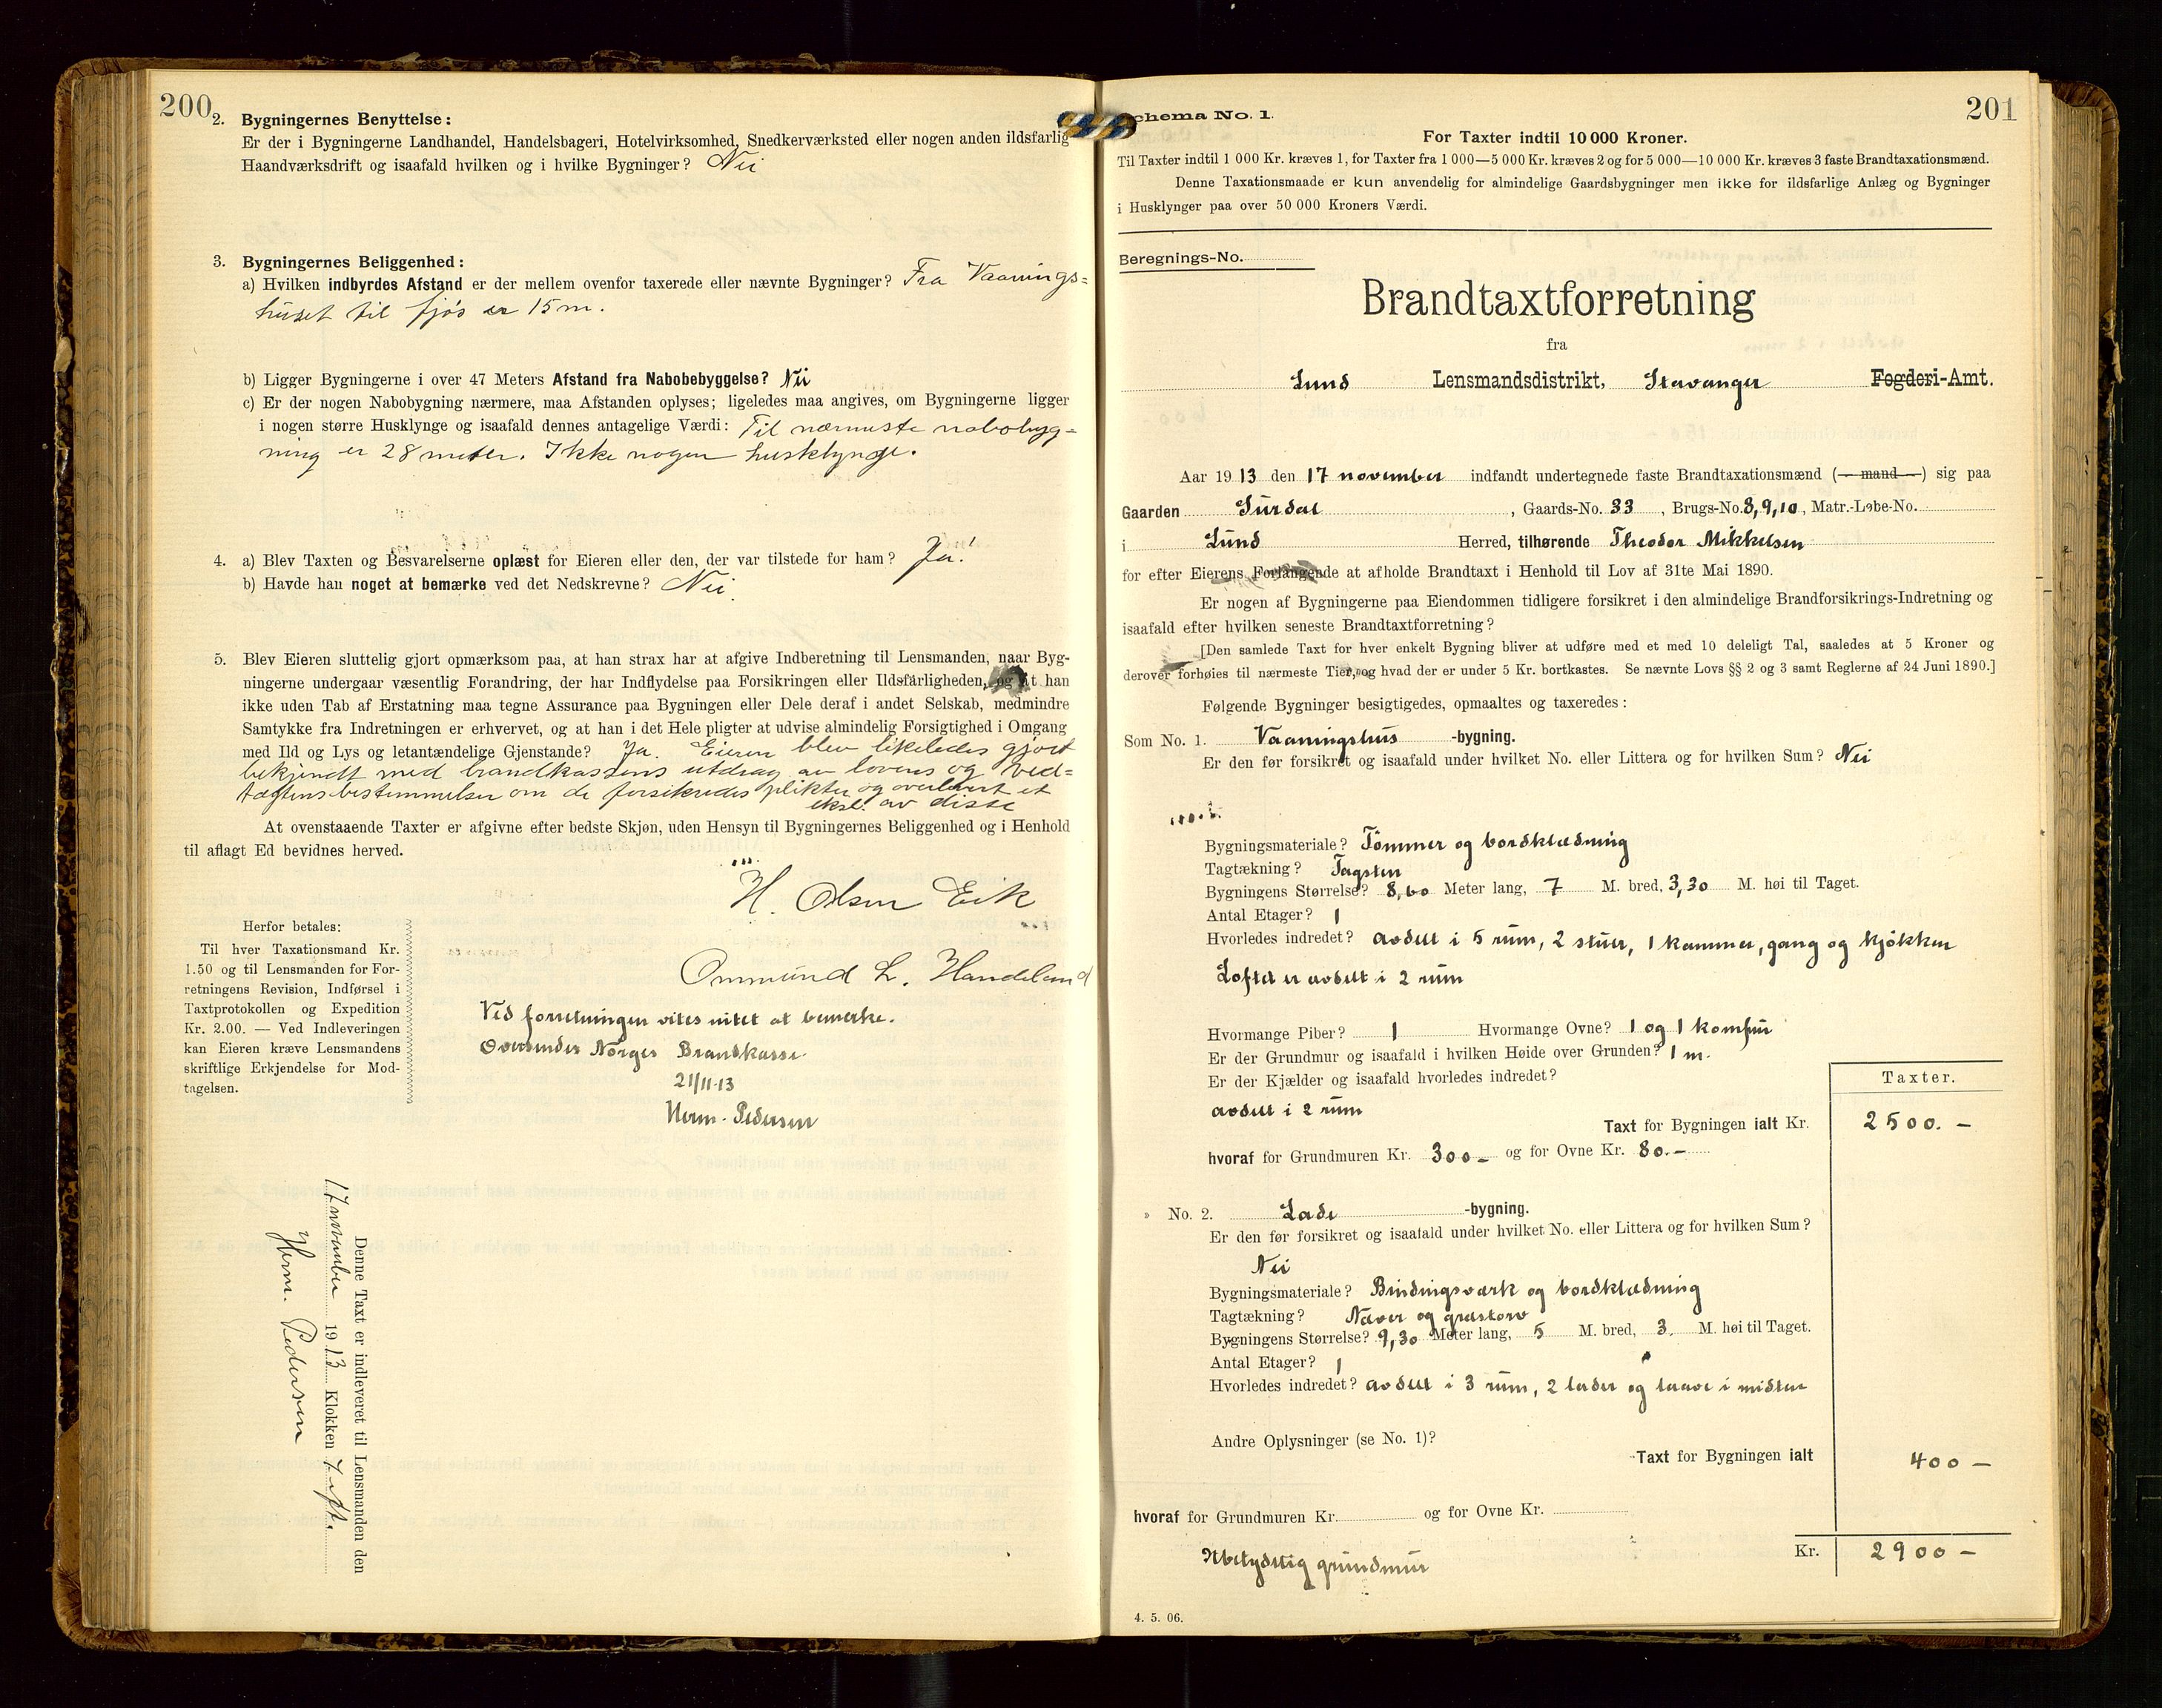 200
2. Bygningernes Benyttelse:
Er der i Bygningerne Landhandel, Handelsbageri, Hotelvirksomhed, Snedkerværksted eller nogen anden ildsfarlig
Haandværksdrift og isaafald hvilken og i hvilke Bygninger? Nei
3. Bygningernes Beliggenhed:
a) Hvilken indbyrdes Afstand er der mellem ovenfor taxerede eller nævnte Bygninger? Fra Vaanings=
huset til fjøs er 15 m.
b) Ligger Bygningerne i over 47 Meters Afstand fra Nabobebyggelse? Nei
c) Er der nogen Nabobygning nærmere, maa Afstanden oplyses; ligeledes maa angives, om Bygningerne ligger
i nogen større Husklynge og isaafald dennes antagelige Værdi: Til nærmeste nabobyg=
ning er 28 meter. Ikke nogen husklynge.
4. a) Blev Taxten og Besvarelserne oplæst for Eieren eller den, der var tilstede for ham? Ja!
b) Havde han noget at bemærke ved det Nedskrevne? Nei.
5. Blev Eieren sluttelig gjort opmærksom paa, at han strax har at afgive Indberetning til Lensmanden, naar Byg-
ningerne undergaar væsentlig Forandring, der har Indflydelse paa Forsikringen eller Ildsfarligheden, og at han
ikke uden Tab af Erstatning maa tegne Assurance paa Bygningen eller Dele deraf i andet Selskab, medmindre
Samtykke fra Indretningen er erhvervet, og at han i det Hele pligter at udvise almindelig Forsigtighed i Omgang
med Ild og Lys og letantændelige Gjenstande? Ja. Eieren blev likeledes gjort
bekjendt med brandkassens utdrag av lovens og ved=
tægtens bestemmelser om de forsikredes plikter og overlevert et
eksl. av disse
At ovenstaaende Taxter er afgivne efter bedste Skjøn, uden Hensyn til Bygningernes Beliggenhed og i Henhold
til aflagt Ed bevidnes herved.
H. Olsen Eik
Ommund L. Handeland
Herfor betales:
Til hver Taxationsmand Kr.
1.50 og til Lensmanden for For-
retningens Revision, Indførsel i
Taxtprotokollen og Expedition
Kr. 2.00. — Ved Indleveringen
kan Eieren kræve Lensmandens
skriftlige Erkjendelse for Mod-
tagelsen.
Ved forretningen vites intet at bemerke.
Oversendes Norges Brandkasse
21/11-13
Herm. Pedersen
Denne Taxt er indleveret til Lensmanden den
17 november 1913 Klokken 7 eft.
Herm. Pedersen
201
Schema No. 1.
For Taxter indtil 10 000 Kroner.
Til Taxter indtil 1 000 Kr. kræves 1, for Taxter fra 1 000—5 000 Kr. kræves 2 og for 5 000—10 000 Kr. kræves 3 faste Brandtaxationsmænd.
Denne Taxationsmaade er kun anvendelig for almindelige Gaardsbygninger men ikke for ildsfarlige Anlæg og Bygninger
i Husklynger paa over 50 000 Kroners Værdi.
Beregnings-No.
Brandtaxtforretning
fra
Lund Lensmandsdistrikt, Stavanger Fogderi-Amt.
Aar 1913 den 17 november indfandt undertegnede faste Brandtaxationsmænd (— mand —) sig paa
Gaarden Surdal, Gaards-No. 33, Brugs-No. 8, 9, 10, Matr.-Løbe-No.
i Lund Herred, tilhørende Theodor Mikkelsen
for efter Eierens Forlangende at afholde Brandtaxt i Henhold til Lov af 31te Mai 1890.
Er nogen af Bygningerne paa Eiendommen tidligere forsikret i den almindelige Brandforsikrings-Indretning og
isaafald efter hvilken seneste Brandtaxtforretning?
[Den samlede Taxt for hver enkelt Bygning bliver at udføre med et med 10 deleligt Tal, saaledes at 5 Kroner og
derover forhøies til nærmeste Tier, og hvad der er under 5 Kr. bortkastes. Se nævnte Lovs §§ 2 og 3 samt Reglerne af 24 Juni 1890.]
Følgende Bygninger besigtigedes, opmaaltes og taxeredes:
Som No. 1. Vaaningshus -bygning.
Er den før forsikret og isaafald under hvilket No. eller Littera og for hvilken Sum? Nei
Bygningsmateriale? Tømmer og bordklædning
Tagtækning? Tagsten
Bygningens Størrelse? 8,60 Meter lang, 7 M. bred, 3,30 M. høi til Taget.
Antal Etager? 1
Hvorledes indredet? avdelt i 5 rum, 2 stuer, 1 kammer, gang og kjøkken
Loftet er avdelt i 2 rum
Hvormange Piber? 1 Hvormange Ovne? 1 og 1 komfur
Er der Grundmur og isaafald i hvilken Høide over Grunden? 1 m.
Er der Kjælder og isaafald hvorledes indredet?
avdelt i 2 rum
Taxter.
Taxt for Bygningen ialt Kr. 2500.—
hvoraf for Grundmuren Kr. 300.— og for Ovne Kr. 80.—
» No. 2. Lade -bygning.
Er den før forsikret og isaafald under hvilket No. eller Littera og for hvilken Sum?
Nei
Bygningsmateriale? Bindingsværk og bordklædning
Tagtækning? Næver og græstorv
Bygningens Størrelse? 9,30 Meter lang, 5 M. bred, 3. M. høi til Taget.
Antal Etager? 1
Hvorledes indredet? avdelt i 3 rum, 2 lader og laave i midten
Andre Oplysninger (se No. 1)?
Taxt for Bygningen ialt 400 —
hvoraf for Grundmuren Kr. og for Ovne Kr.
Ubetydelig grundmur
Kr. 2900 —
4. 5. 06.